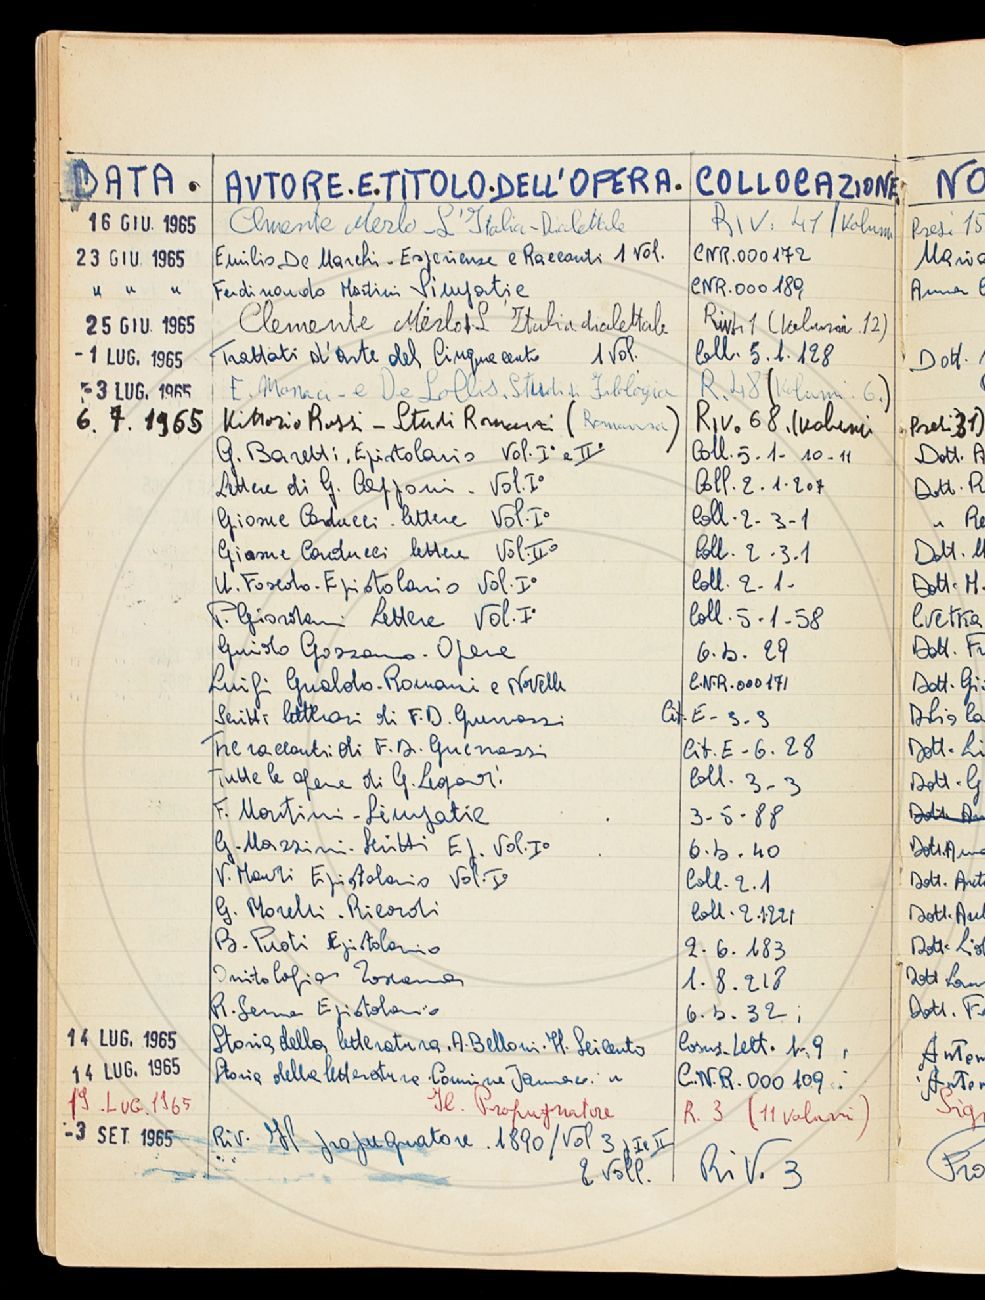 DATA. AUTORE.E.TITOLO.DELL'OPERA. COLLOCAZIONE. NO
16 GIU. 1965 Clemente Merlo - L'Italia-Dialettale RIV. 41 / Volumi Presi 15
23 GIU. 1965 Emilio De Marchi - Esperienze e Racconti 1 Vol. CNR.000172 Maria
" " " Ferdinando Martini Simpatie CNR.000189 Anna
25 GIU 1965 Clemente Merlo L'Italia dialettale Riv. 1 (Volumi 12)
-1 LUG. 1965 Trattati d'Arte del Cinquecento 1 Vol. Coll. 5.1.128 Dott.
-3 LUG. 1965 E. Monaci - e De Lollis. Studi di Filologia R. 48 (Volumi 6.)
6. 7. 1965 Vittorio Rossi - Studi Romanzi (Romanza) Riv. 68. (Volumi Presi 31)
G. Baretti, Epistolario Vol. I° e II° Coll. 5-1- 10-11 Dott. A
Lettere di G. Capponi - Vol. I° Coll. 2.1.207 Dott. R
Giosue Carducci lettere Vol. I° Coll. 2-3-1 " Re
Giosue Carducci lettere Vol. II° Coll. 2.3.1 Dott. M
U. Foscolo. Epistolario Vol. I° Coll. 2-1- Dott. M.
P. Giordani Lettere Vol. I° Coll. 5-1-58 Cvetka
Guido Gozzano - Opere 6.b. 29 Dott. Fr
Luigi Gualdo. Romanzi e Novelle C.N.R.000171 Dott. Gi
Scritti letterari di F.D. Guerrazzi Cit. E-3-3
Tre racconti di F.D. Guerrazzi Cit. E-6.28 Dott. Li
Tutte le opere di G. Leopardi Coll. 3-3 Dott. G
F. Martini - Simpatie 3-5-88
G. Mazzini - Scritti Ep. Vol. I° 6.b.40 Dott. Anna
V. Monti Epistolario Vol. I° Coll. 2.1 Dott.
G. Morelli . Ricordi Coll. 2.1221 Dott.
B. Prati Epistolario 2-6.183 Dott.
Ornitologia Toscana 1.8.218 Dott.
R. Serra Epistolario 6.b.32 Dott. Fe
14 LUG. 1965 Storia della letteratura. A. Belloni. Il Seicento Cons. Lett. 1.9 Anton
14 LUG. 1965 Storia della letteratura Carmine Jannaco. " C.N.R. 000 109 Anton
19. LUG. 1965 Il. Propugnatore R. 3 (11 volumi) Sig
-3 SET. 1965 Riv. Il propugnatore. 1890/Vol 3, I e II
2 Voll. RiV. 3 Pro